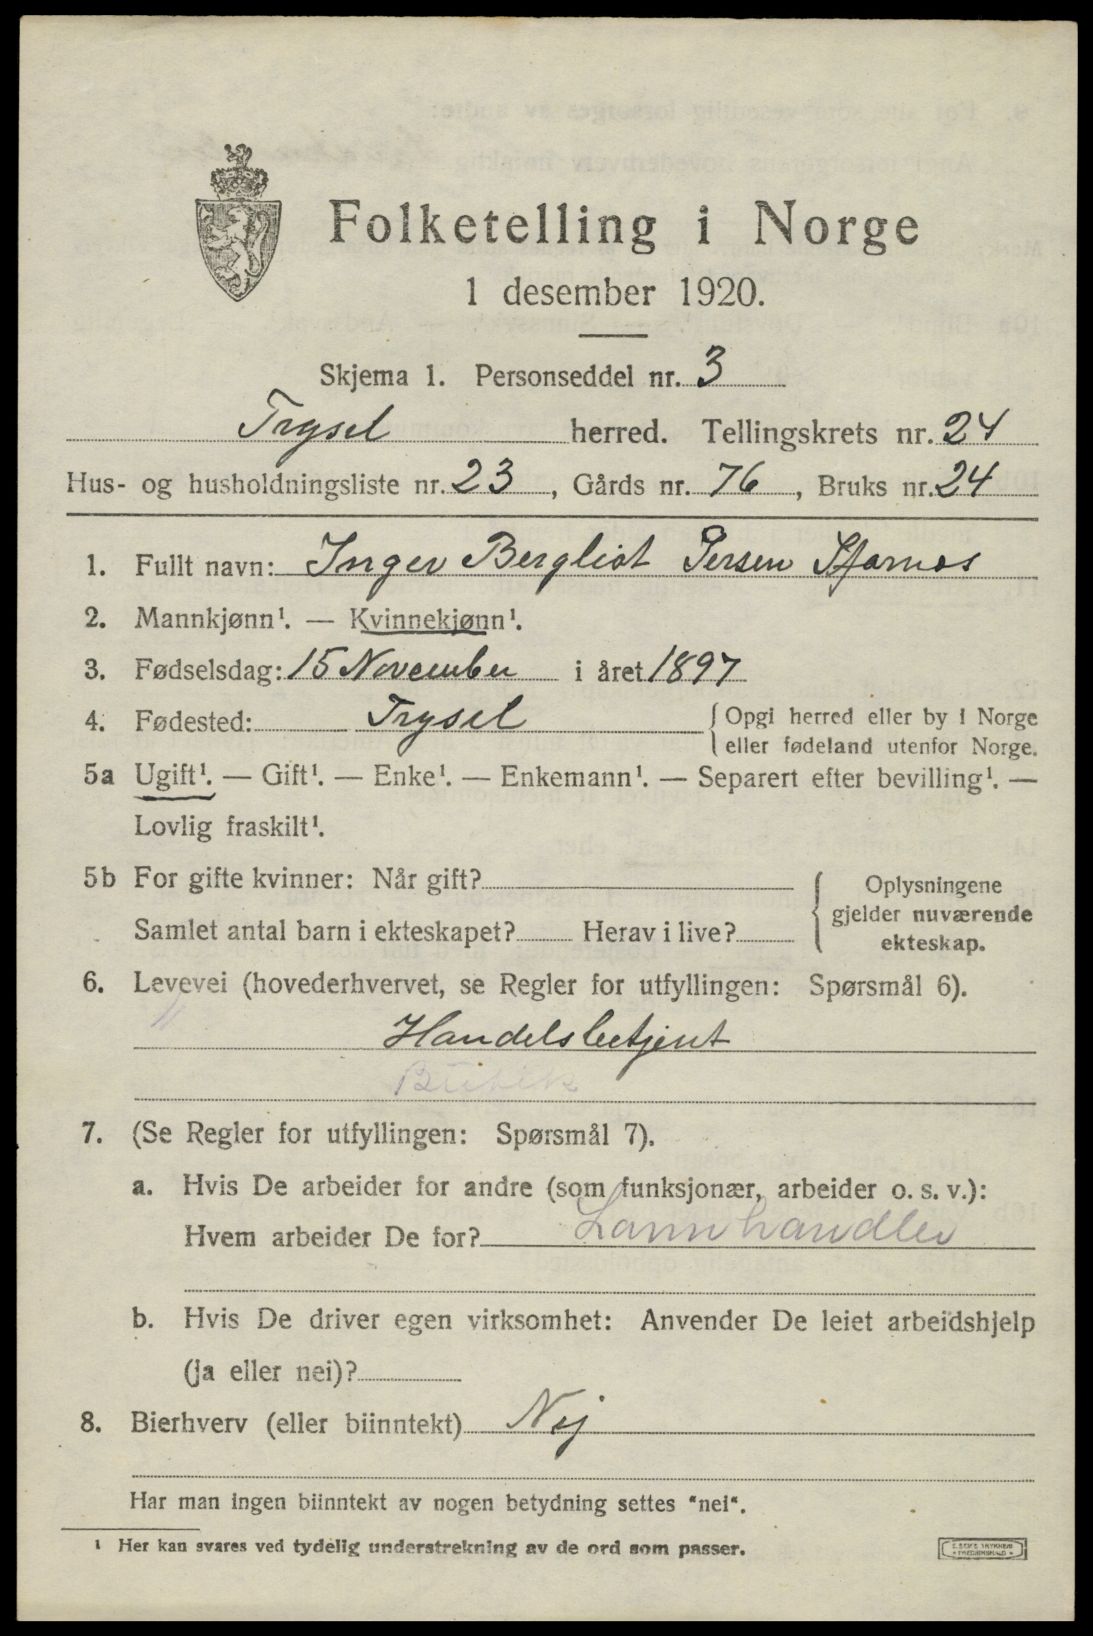 Folketelling i Norge
1 desember 1920.
Skjema 1. Personseddel nr. 3
Trysel herred. Tellingskrets nr. 24
Hus- og husholdningsliste nr. 23, Gårds nr. 76, Bruks nr. 24
1. Fullt navn: Inger Bergliot Persen
2. Mannkjønn¹. — Kvinnekjønn¹.
3. Fødselsdag: 15 November i året 1897
4. Fødested: Trysel {Opgi herred eller by i Norge
eller fødeland utenfor Norge.
5a Ugift¹. — Gift¹. — Enke¹. — Enkemann¹. — Separert efter bevilling¹. —
Lovlig fraskilt¹.
5b For gifte kvinner: Når gift? Oplysningene
gjelder nuværende
Samlet antal barn i ekteskapet? Herav i live?
ekteskap.
6. Levevei (hovederhvervet, se Regler for utfyllingen: Spørsmål 6).
Handelsbetjent
7. (Se Regler for utfyllingen: Spørsmål 7).
a. Hvis De arbeider for andre (som funksjonær, arbeider o. s. v.):
Hvem arbeider De for? Lannhandler
b. Hvis De driver egen virksomhet: Anvender De leiet arbeidshjelp
(ja eller nei)?
8. Bierhverv (eller biinntekt) Nej
Har man ingen biinntekt av nogen betydning settes "nei".
¹ Her kan svares ved tydelig understrekning av de ord som passer.